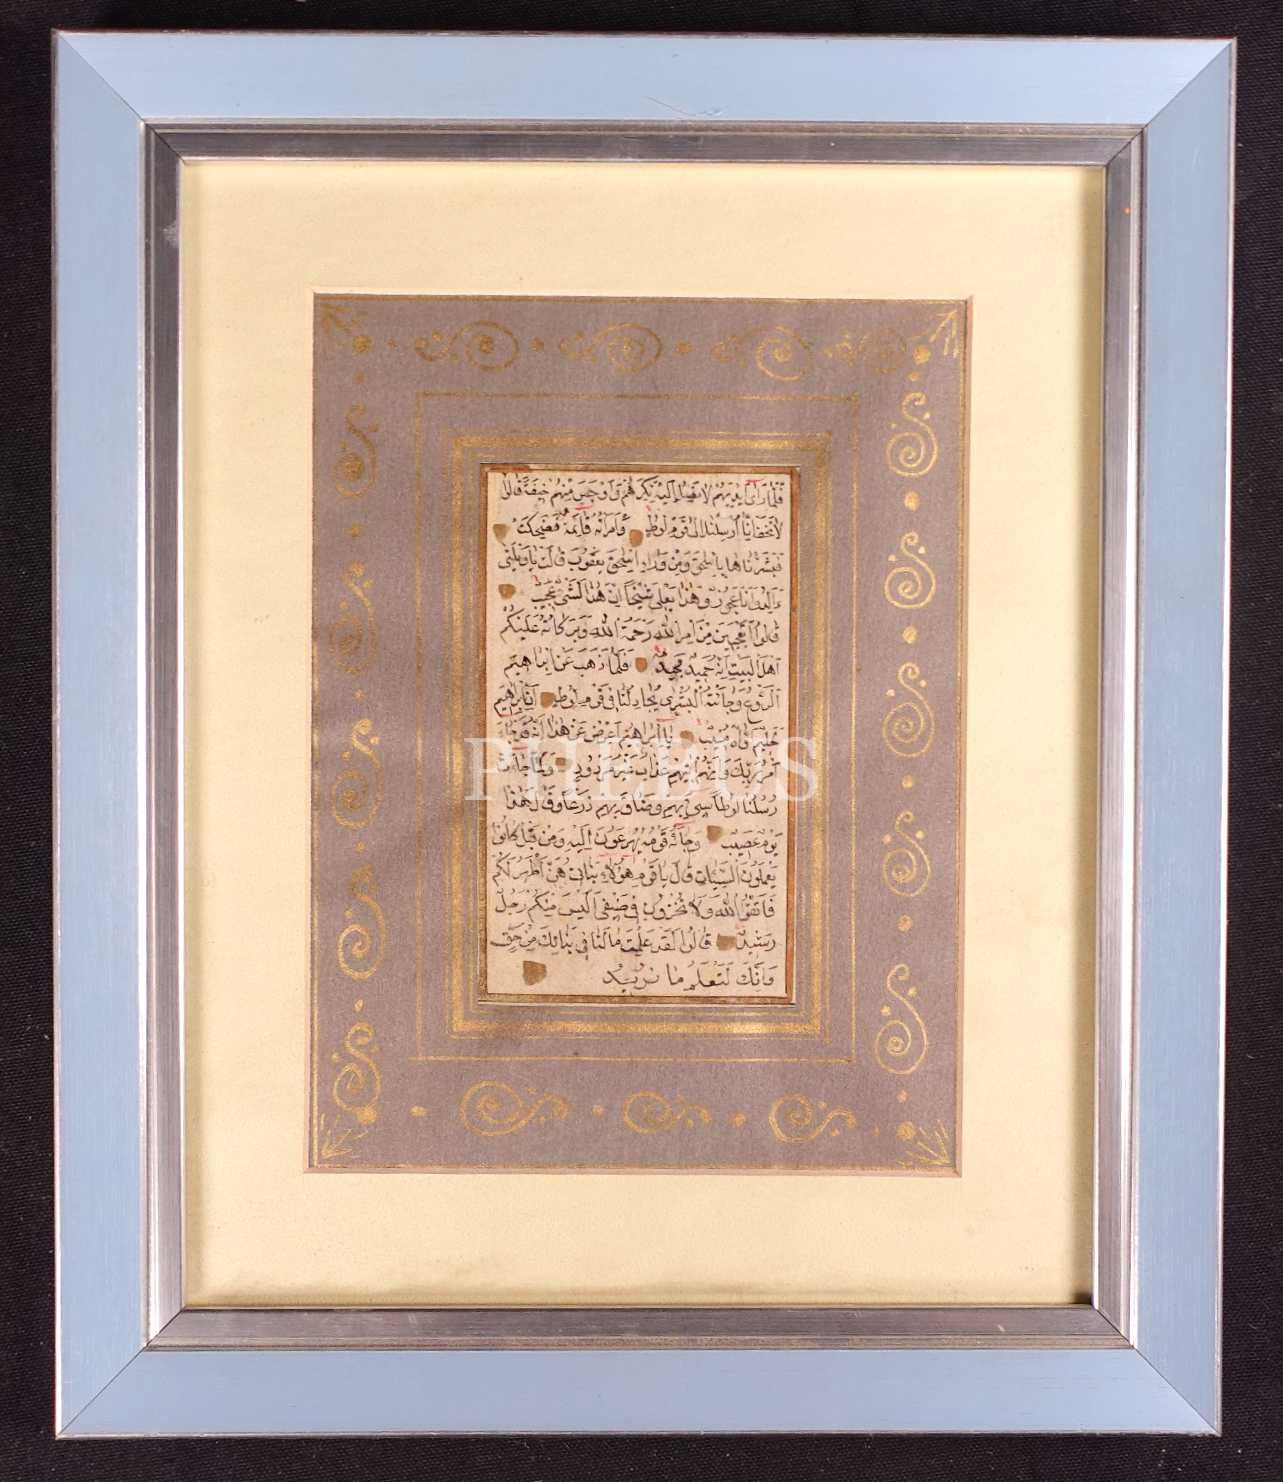 فَلَمَّا رَآى اَيْدِيَهُمْ لَا تَصِلُ اِلَيْهِ نَكِرَهُمْ وَاَوْجَسَ مِنْهُمْ خِيفَةً قَالُوا
لَا تَخَفْ اِنَّا اُرْسِلْنَا اِلٰى قَوْمِ لُوطٍ وَامْرَاَتُهُ قَائِمَةٌ فَضَحِكَتْ
فَبَشَّرْنَاهَا بِاِسْحٰقَ وَمِنْ وَرَاءِ اِسْحٰقَ يَعْقُوبَ قَالَتْ يَا وَيْلَتٰى
ءَاَلِدُ وَاَنَا عَجُوزٌ وَهٰذَا بَعْلِى شَيْخًا اِنَّ هٰذَا لَشَىْءٌ عَجِيبٌ
قَالُوا اَتَعْجَبِينَ مِنْ اَمْرِ اللّٰهِ رَحْمَةُ اللّٰهِ وَبَرَكَاتُهُ عَلَيْكُمْ
اَهْلَ الْبَيْتِ اِنَّهُ حَمِيدٌ مَجِيدٌ فَلَمَّا ذَهَبَ عَنْ اِبْرَاهِيمَ
الرَّوْعُ وَجَاءَتْهُ الْبُشْرٰى يُجَادِلُنَا فِى قَوْمِ لُوطٍ اِنَّ اِبْرَاهِيمَ
لَحَلِيمٌ اَوَّاهٌ مُنِيبٌ يَا اِبْرَاهِيمُ اَعْرِضْ عَنْ هٰذَا اِنَّهُ قَدْ جَاءَ
اَمْرُ رَبِّكَ وَاِنَّهُمْ اٰتِيهِمْ عَذَابٌ غَيْرُ مَرْدُودٍ وَلَمَّا جَاءَتْ
رُسُلُنَا لُوطًا سِىءَ بِهِمْ وَضَاقَ بِهِمْ ذَرْعًا وَقَالَ هٰذَا
يَوْمٌ عَصِيبٌ وَجَاءَهُ قَوْمُهُ يُهْرَعُونَ اِلَيْهِ وَمِنْ قَبْلُ كَانُوا
يَعْمَلُونَ السَّيِّئَاتِ قَالَ يَا قَوْمِ هٰؤُلَاءِ بَنَاتِى هُنَّ اَطْهَرُ لَكُمْ
فَاتَّقُوا اللّٰهَ وَلَا تُخْزُونِ فِى ضَيْفِى اَلَيْسَ مِنْكُمْ رَجُلٌ
رَشِيدٌ قَالُوا لَقَدْ عَلِمْتَ مَا لَنَا فِى بَنَاتِكَ مِنْ حَقٍّ
وَاِنَّكَ لَتَعْلَمُ مَا نُرِيدُ
PHEBUS